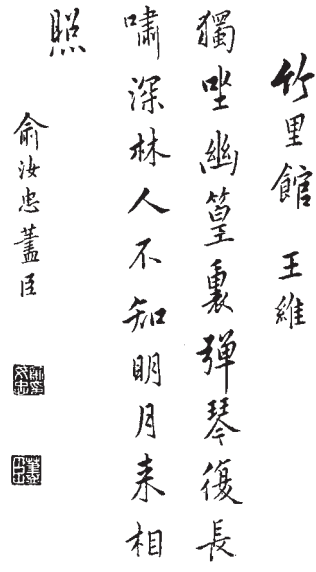 竹里館 王維
獨坐幽篁裏彈琴復長
嘯深林人不知明月來相
照
俞汝忠藎臣